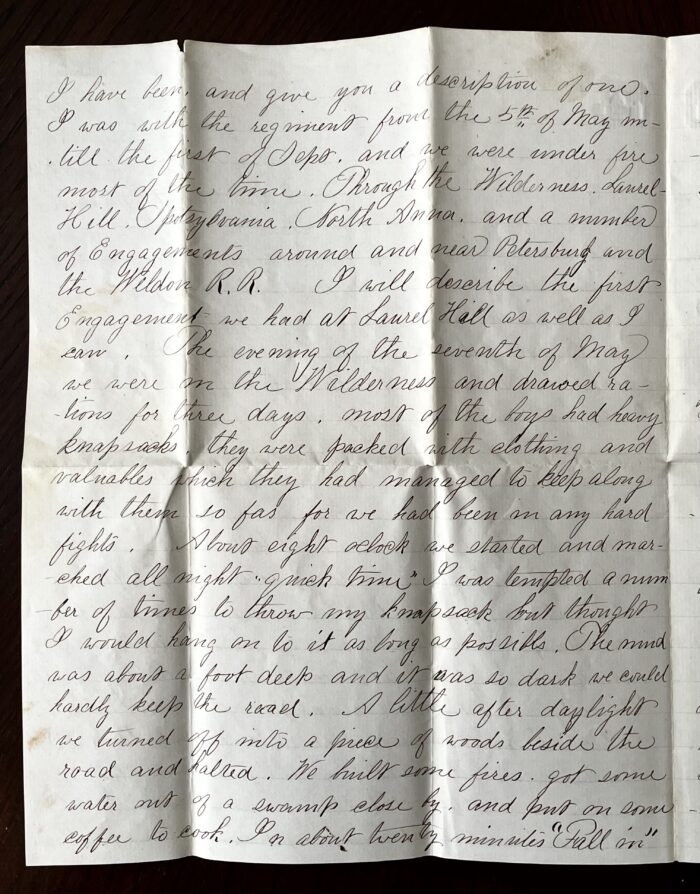 I have been, and give you a description of one.
I was with the regiment from the 5th of May un-
till the first of Sept. and we were under fire
most of the time. Through the Wilderness. Laurel-
Hill. Spotsylvania. North Anna. and a number
of Engagements around and near Petersburg and
the Wildon R.R. I will describe the first
Engagement we had at Laurel Hill as well as I
can. The evening of the seventh of May
we were in the Wilderness and drawed ra-
-tions for three days. most of the boys had heavy
knapsacks. they were packed with clothing and
valuables which they had managed to keep along
with them so far for we had been in any hard
fights. About eight oclock we started and mar-
-ched all night "quick time" I was tempted a num
-ber of times to throw my knapsack but thought
I would hang on to it as long as possible. The mud
was about a foot deep and it was so dark we could
hardly keep the road. A little after daylight
we turned off into a piece of woods beside the
road and halted. We built some fires. got some
water out of a swamp close by. and put on some
coffee to cook. In about twenty minutes "Fall in"